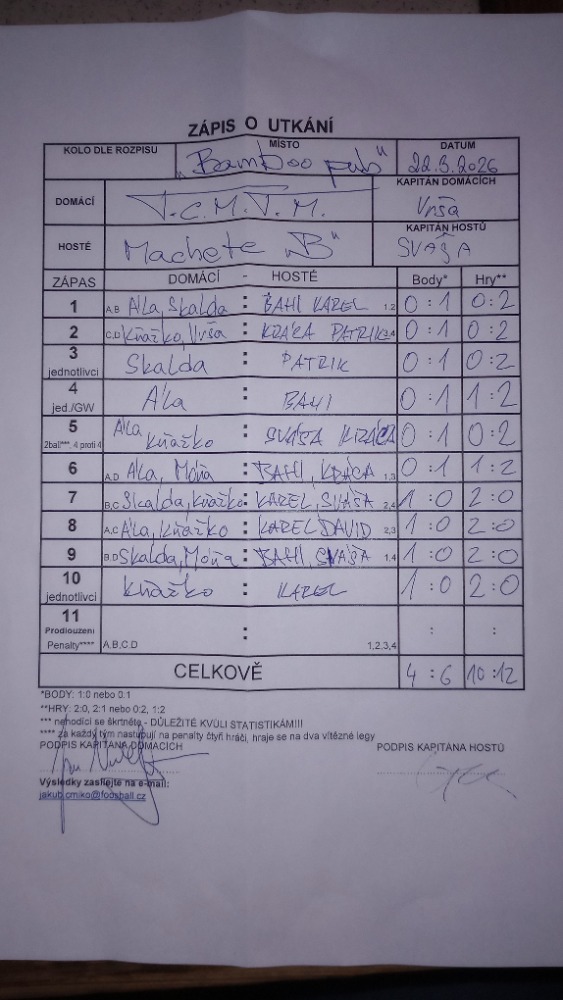 ZÁPIS O UTKÁNÍ
KOLO DLE ROZPISU MÍSTO DATUM
"Bamboo pub" 22.3.2026
DOMÁCÍ T.C.M.T.M. KAPITÁN DOMÁCÍCH Vrša
HOSTÉ Machete "B" KAPITÁN HOSTŮ SVÁŠA
ZÁPAS DOMÁCÍ - HOSTÉ Body* Hry**
1 A,B Ála, Skalda : BAHI KAREL 1,2 0:1 0:2
2 C,D Kňažko, Vrša : KRÁCA PATRIK 3,4 0:1 0:2
3 jednotlivci Skalda : PATRIK 0:1 0:2
4 jed./GW Ála : BAHI 0:1 1:2
5 2ball***, 4 proti 4 Ála Kňažko : SVÁŠA KRÁCA 0:1 0:2
6 A,D Ála, Móňa : BAHI, KRÁCA 1,3 0:1 1:2
7 B,C Skalda, Kňažko : KAREL, SVÁŠA 2,4 1:0 2:0
8 A,C Ála, Kňažko : KAREL DAVID 2,3 1:0 2:0
9 B,D Skalda, Móňa : BAHI, SVÁŠA 1,4 1:0 2:0
10 jednotlivci Kňažko : KAREL 1:0 2:0
11 Prodloužení Penalty**** A,B,C,D : 1,2,3,4 : :
CELKOVĚ 4:6 10:12
*BODY: 1:0 nebo 0:1
**HRY: 2:0, 2:1 nebo 0:2, 1:2
*** nehodící se škrtněte - DŮLEŽITÉ KVŮLI STATISTIKÁM!!!
**** za každý tým nastupují na penalty čtyři hráči, hraje se na dva vítězné legy
PODPIS KAPITÁNA DOMÁCÍCH PODPIS KAPITÁNA HOSTŮ
Výsledky zasílejte na e-mail:
jakub.cmiko@foosball.cz